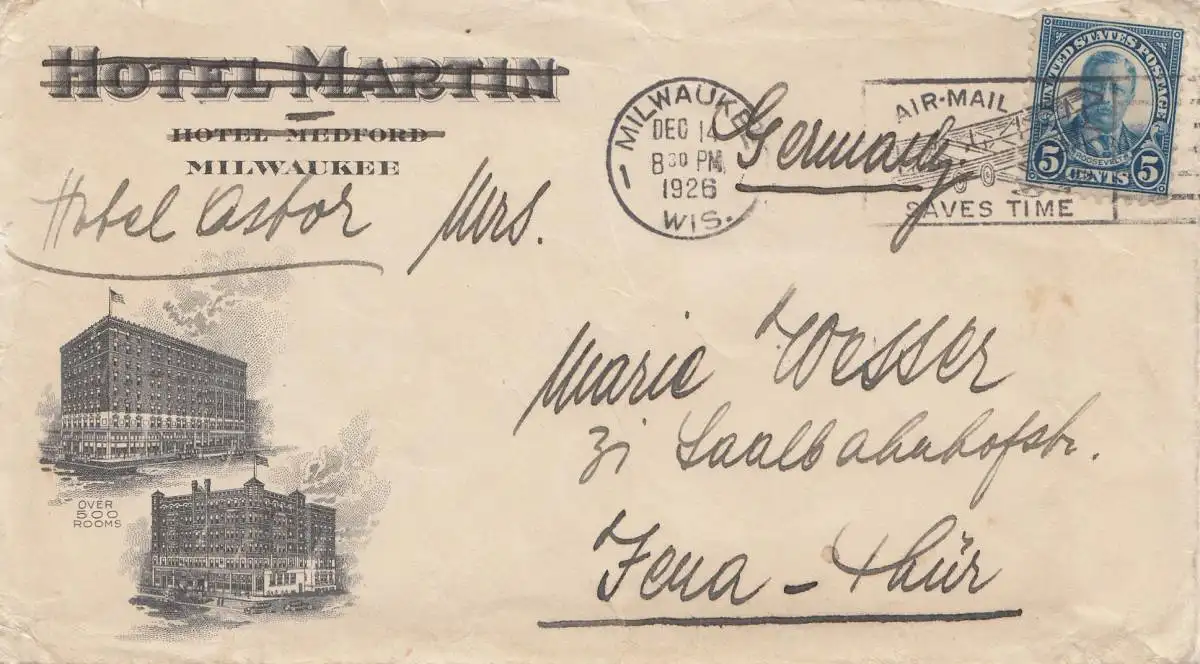 HOTEL MARTIN
HOTEL MEDFORD
MILWAUKEE
Hotel Astor
OVER
500
ROOMS
MILWAUKEE
DEC 14
8 30 PM
1926
WIS.
AIR-MAIL
SAVES TIME
UNITED STATES POSTAGE
ROOSEVELT
5 CENTS 5
Germany.
Mrs.
Marie Wesser
Saalbahnhofstr.
Jena - Thür